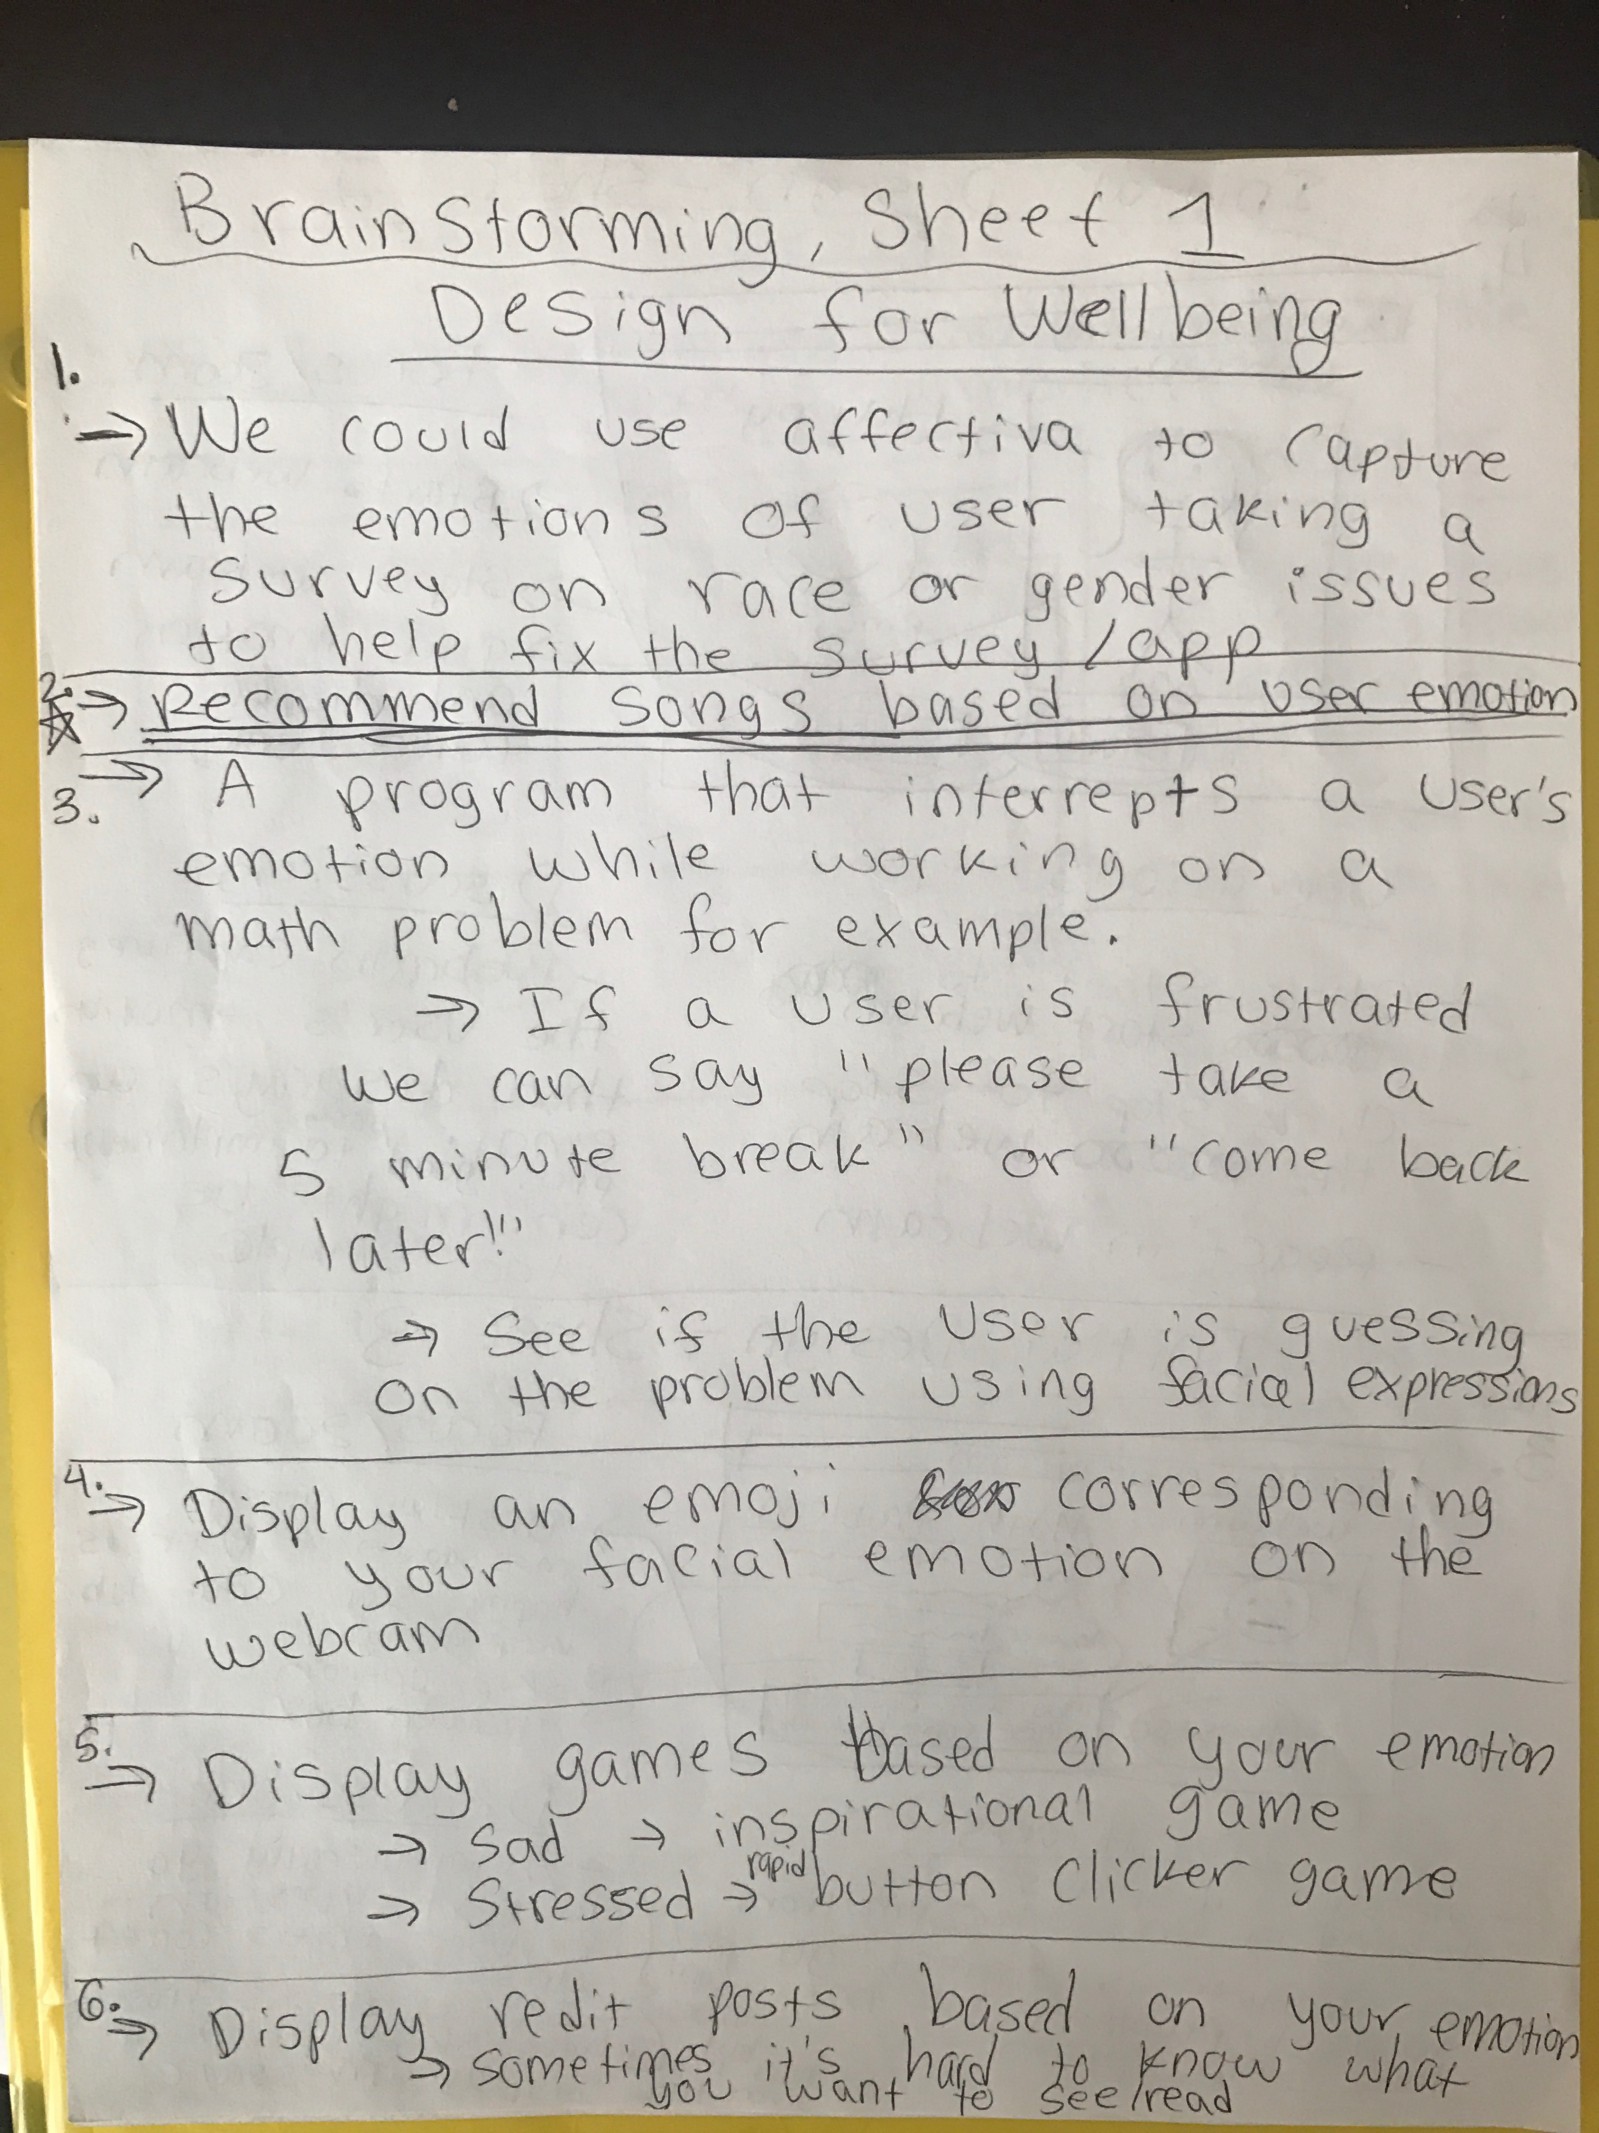 Brainstorming, Sheet 1
Design for Wellbeing
1.
→ We could use affectiva to capture
the emotions of user taking a
survey on race or gender issues
to help fix the survey/app
2. ☆ → Recommend songs based on user emotion
3. → A program that interrepts a user's
emotion while working on a
math problem for example.
→ If a user is frustrated
we can say "please take a
5 minute break" or "come back
later!"
→ See if the user is guessing
on the problem using facial expressions
4. → Display an emoji corresponding
to your facial emotion on the
webcam
5. → Display games based on your emotion
→ Sad → inspirational game
→ Stressed → rapid button clicker game
6. → Display redit posts based on your emotion
→ sometimes it's hard to know what
you want to see/read